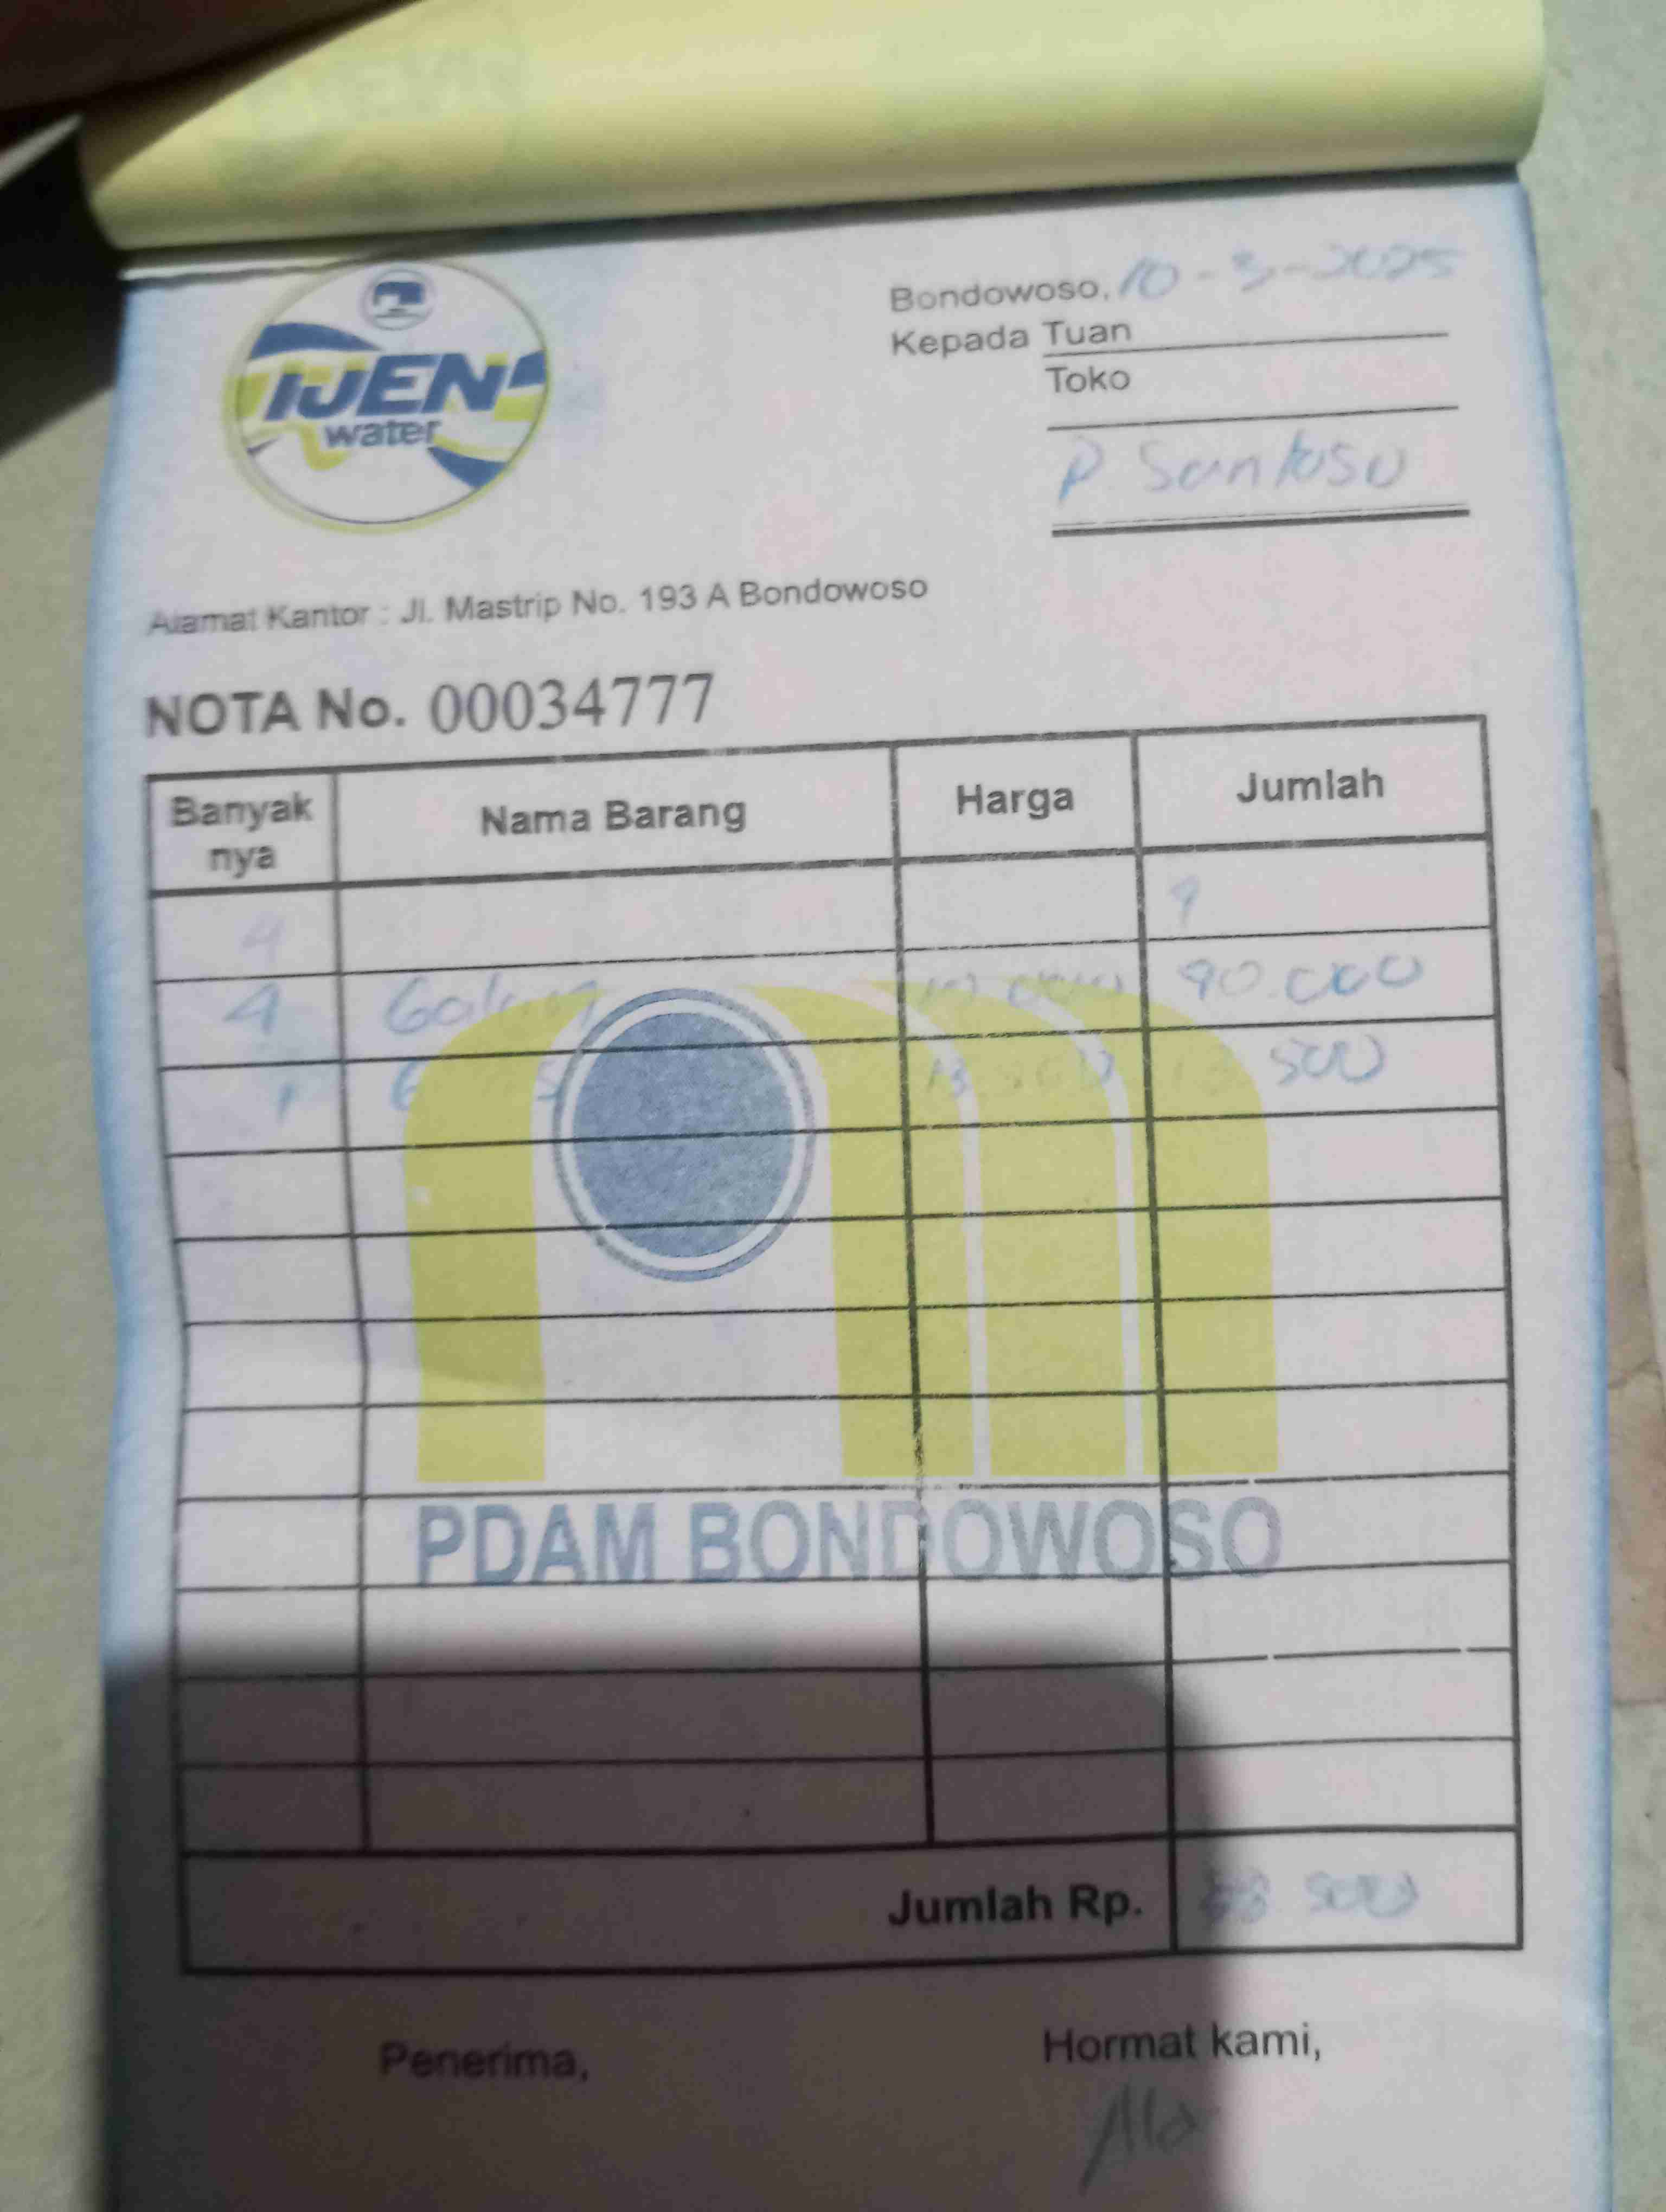 IJEN
water
Bondowoso, 10-3-2025
Kepada Tuan
Toko
P Santoso
Alamat Kantor : Jl. Mastrip No. 193 A Bondowoso
NOTA No. 00034777
Banyak nya Nama Barang Harga Jumlah
4
4 Galon 90.000
1 500
PDAM BONDOWOSO
Jumlah Rp. 500
Penerima, Hormat kami,